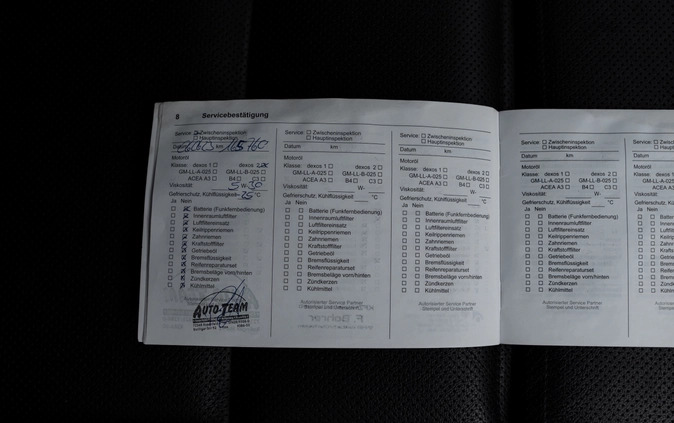 8 Servicebestätigung
Service: ☐ Zwischeninspektion
☐ Hauptinspektion
km 165760
Motoröl
Klasse: dexos 1 ☐ dexos 2
GM-LL-A-025 ☐ GM-LL-B-025 ☐
ACEA A3 ☐ B4 ☐ C3 ☐
Viskosität 5 W- 30
Gefrierschutz, Kühlflüssigkeit -25 °C
Ja Nein
Batterie (Funkfernbedienung)
Innenraumluftfilter
Luftfiltereinsatz
Keilrippenriemen
Zahnriemen
Kraftstofffilter
Getriebeöl
Bremsflüssigkeit
Reifenreparaturset
Bremsbeläge vorn/hinten
Zündkerzen
Kühlmittel
AUTO-TEAM
Service: ☐ Zwischeninspektion
☐ Hauptinspektion
Datum km
Motoröl
Klasse: dexos 1 ☐ dexos 2 ☐
GM-LL-A-025 ☐ GM-LL-B-025 ☐
ACEA A3 ☐ B4 ☐ C3 ☐
Viskosität W-
Gefrierschutz, Kühlflüssigkeit °C
Ja Nein
☐ ☐ Batterie (Funkfernbedienung)
☐ ☐ Innenraumluftfilter
☐ ☐ Luftfiltereinsatz
☐ ☐ Keilrippenriemen
☐ ☐ Zahnriemen
☐ ☐ Kraftstofffilter
☐ ☐ Getriebeöl
☐ ☐ Bremsflüssigkeit
☐ ☐ Reifenreparaturset
☐ ☐ Bremsbeläge vorn/hinten
☐ ☐ Zündkerzen
☐ ☐ Kühlmittel
Autorisierter Service Partner
Stempel und Unterschrift
Service: ☐ Zwischeninspektion
☐ Hauptinspektion
Datum km
Motoröl
Klasse: dexos 1 ☐ dexos 2 ☐
GM-LL-A-025 ☐ GM-LL-B-025 ☐
ACEA A3 ☐ B4 ☐ C3 ☐
Viskosität W-
Gefrierschutz, Kühlflüssigkeit °C
Ja Nein
☐ ☐ Batterie (Funkfernbedienung)
☐ ☐ Innenraumluftfilter
☐ ☐ Luftfiltereinsatz
☐ ☐ Keilrippenriemen
☐ ☐ Zahnriemen
☐ ☐ Kraftstofffilter
☐ ☐ Getriebeöl
☐ ☐ Bremsflüssigkeit
☐ ☐ Reifenreparaturset
☐ ☐ Bremsbeläge vorn/hinten
☐ ☐ Zündkerzen
☐ ☐ Kühlmittel
Autorisierter Service Partner
Stempel und Unterschrift
Service: ☐ Zwischeninspektion
☐ Hauptinspektion
Datum km
Motoröl
Klasse: dexos 1 ☐ dexos 2 ☐
GM-LL-A-025 ☐ GM-LL-B-025 ☐
ACEA A3 ☐ B4 ☐ C3 ☐
Viskosität W-
Gefrierschutz, Kühlflüssigkeit °C
Ja Nein
☐ ☐ Batterie (Funkfernbedienung)
☐ ☐ Innenraumluftfilter
☐ ☐ Luftfiltereinsatz
☐ ☐ Keilrippenriemen
☐ ☐ Zahnriemen
☐ ☐ Kraftstofffilter
☐ ☐ Getriebeöl
☐ ☐ Bremsflüssigkeit
☐ ☐ Reifenreparaturset
☐ ☐ Bremsbeläge vorn/hinten
☐ ☐ Zündkerzen
☐ ☐ Kühlmittel
Autorisierter Service Partner
Stempel und Unterschrift
Service: ☐
Datum
Motoröl
Klasse:
GM-LL-A
ACE
Viskosität
Gefriersch
Ja Nein